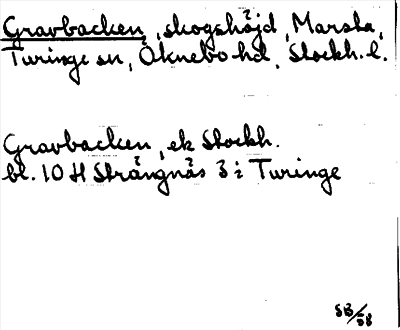 Gravbacken, skogshöjd, Marsta,
Turinge sn, Öknebo hd, Stockh. l.
Gravbacken, ek Stockh.
bl. 10 H Strängnäs 3 i Turinge
SB/58